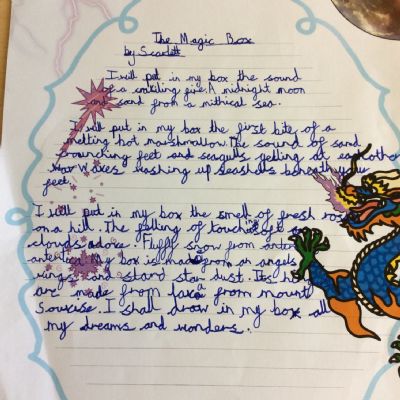 The Magic Box
by Scarlett
I will put in my box the sound
of a crackling fire. A midnight moon
and sand from a mithical sea.
I will put in my box the first bite of a
melting hot marshmallow. The sound of sand
crounching feet and seagulls yelling at eachother
Waves washing up seashells beneath my
feet.
I will put in my box the smell of fresh
on a hill. The felling of touching
clouds Fluffy snow from
My box is made from an angels
wings and stard star dust. Its
are made from from mount
I shall draw in my box all
my dreams and wonders.